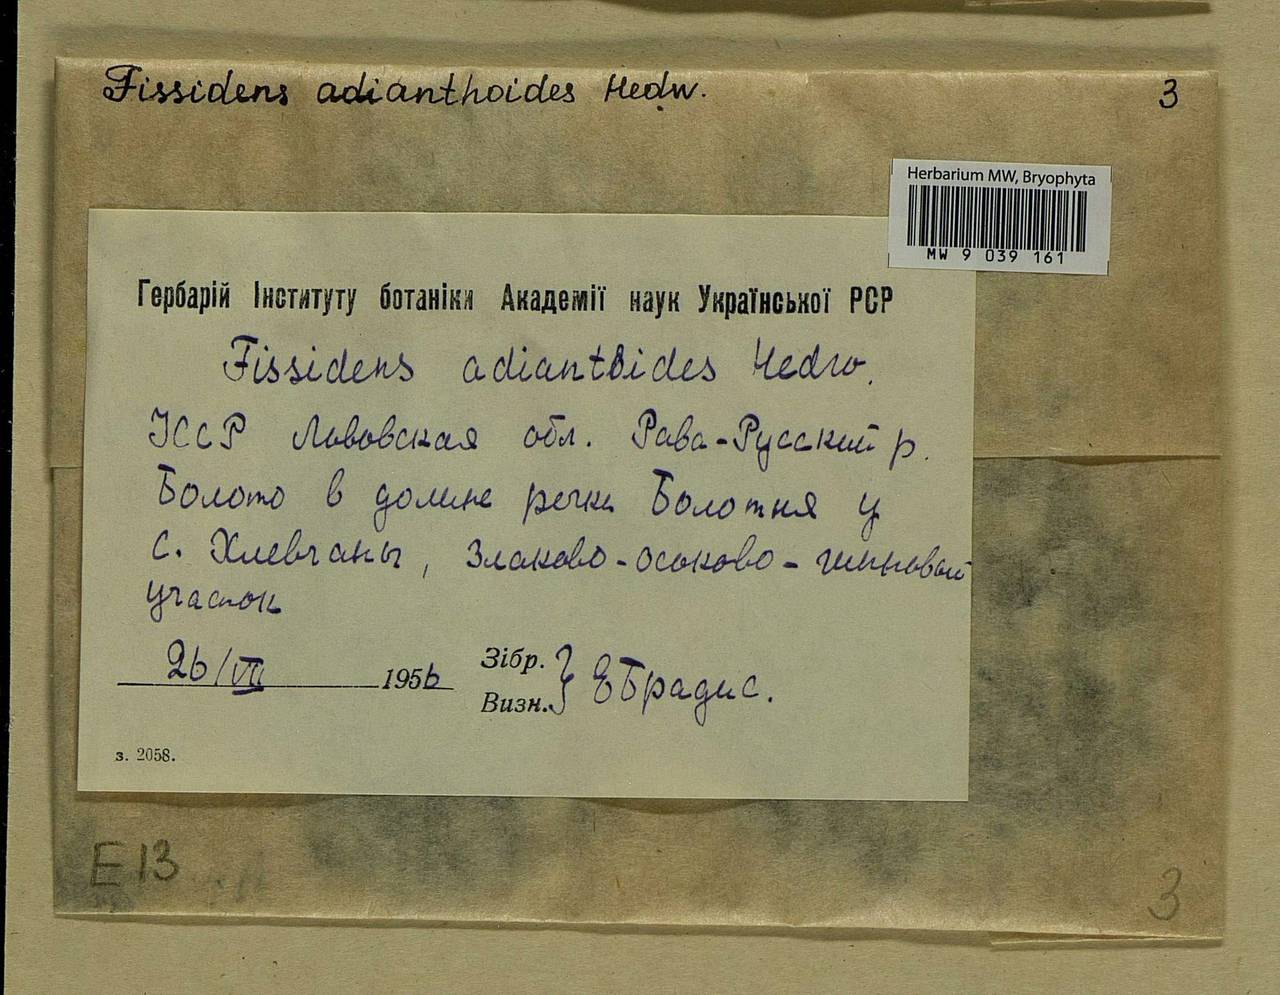 Fissidens adianthoides Hedw.
3
Herbarium MW, Bryophyta
MW 9 039 161
Гербарій Інституту ботаніки Академії наук Української РСР
Fissidens adiantoides Hedw.
УССР Львовская обл. Рава-Русский р.
Болото в долине речки Болотня у
с. Хлевчаны, злаково-осоково-гипновый
участок
26/VII 1956 Зібр.
Визн. } Е Брадис.
з. 2058.
E 13
3